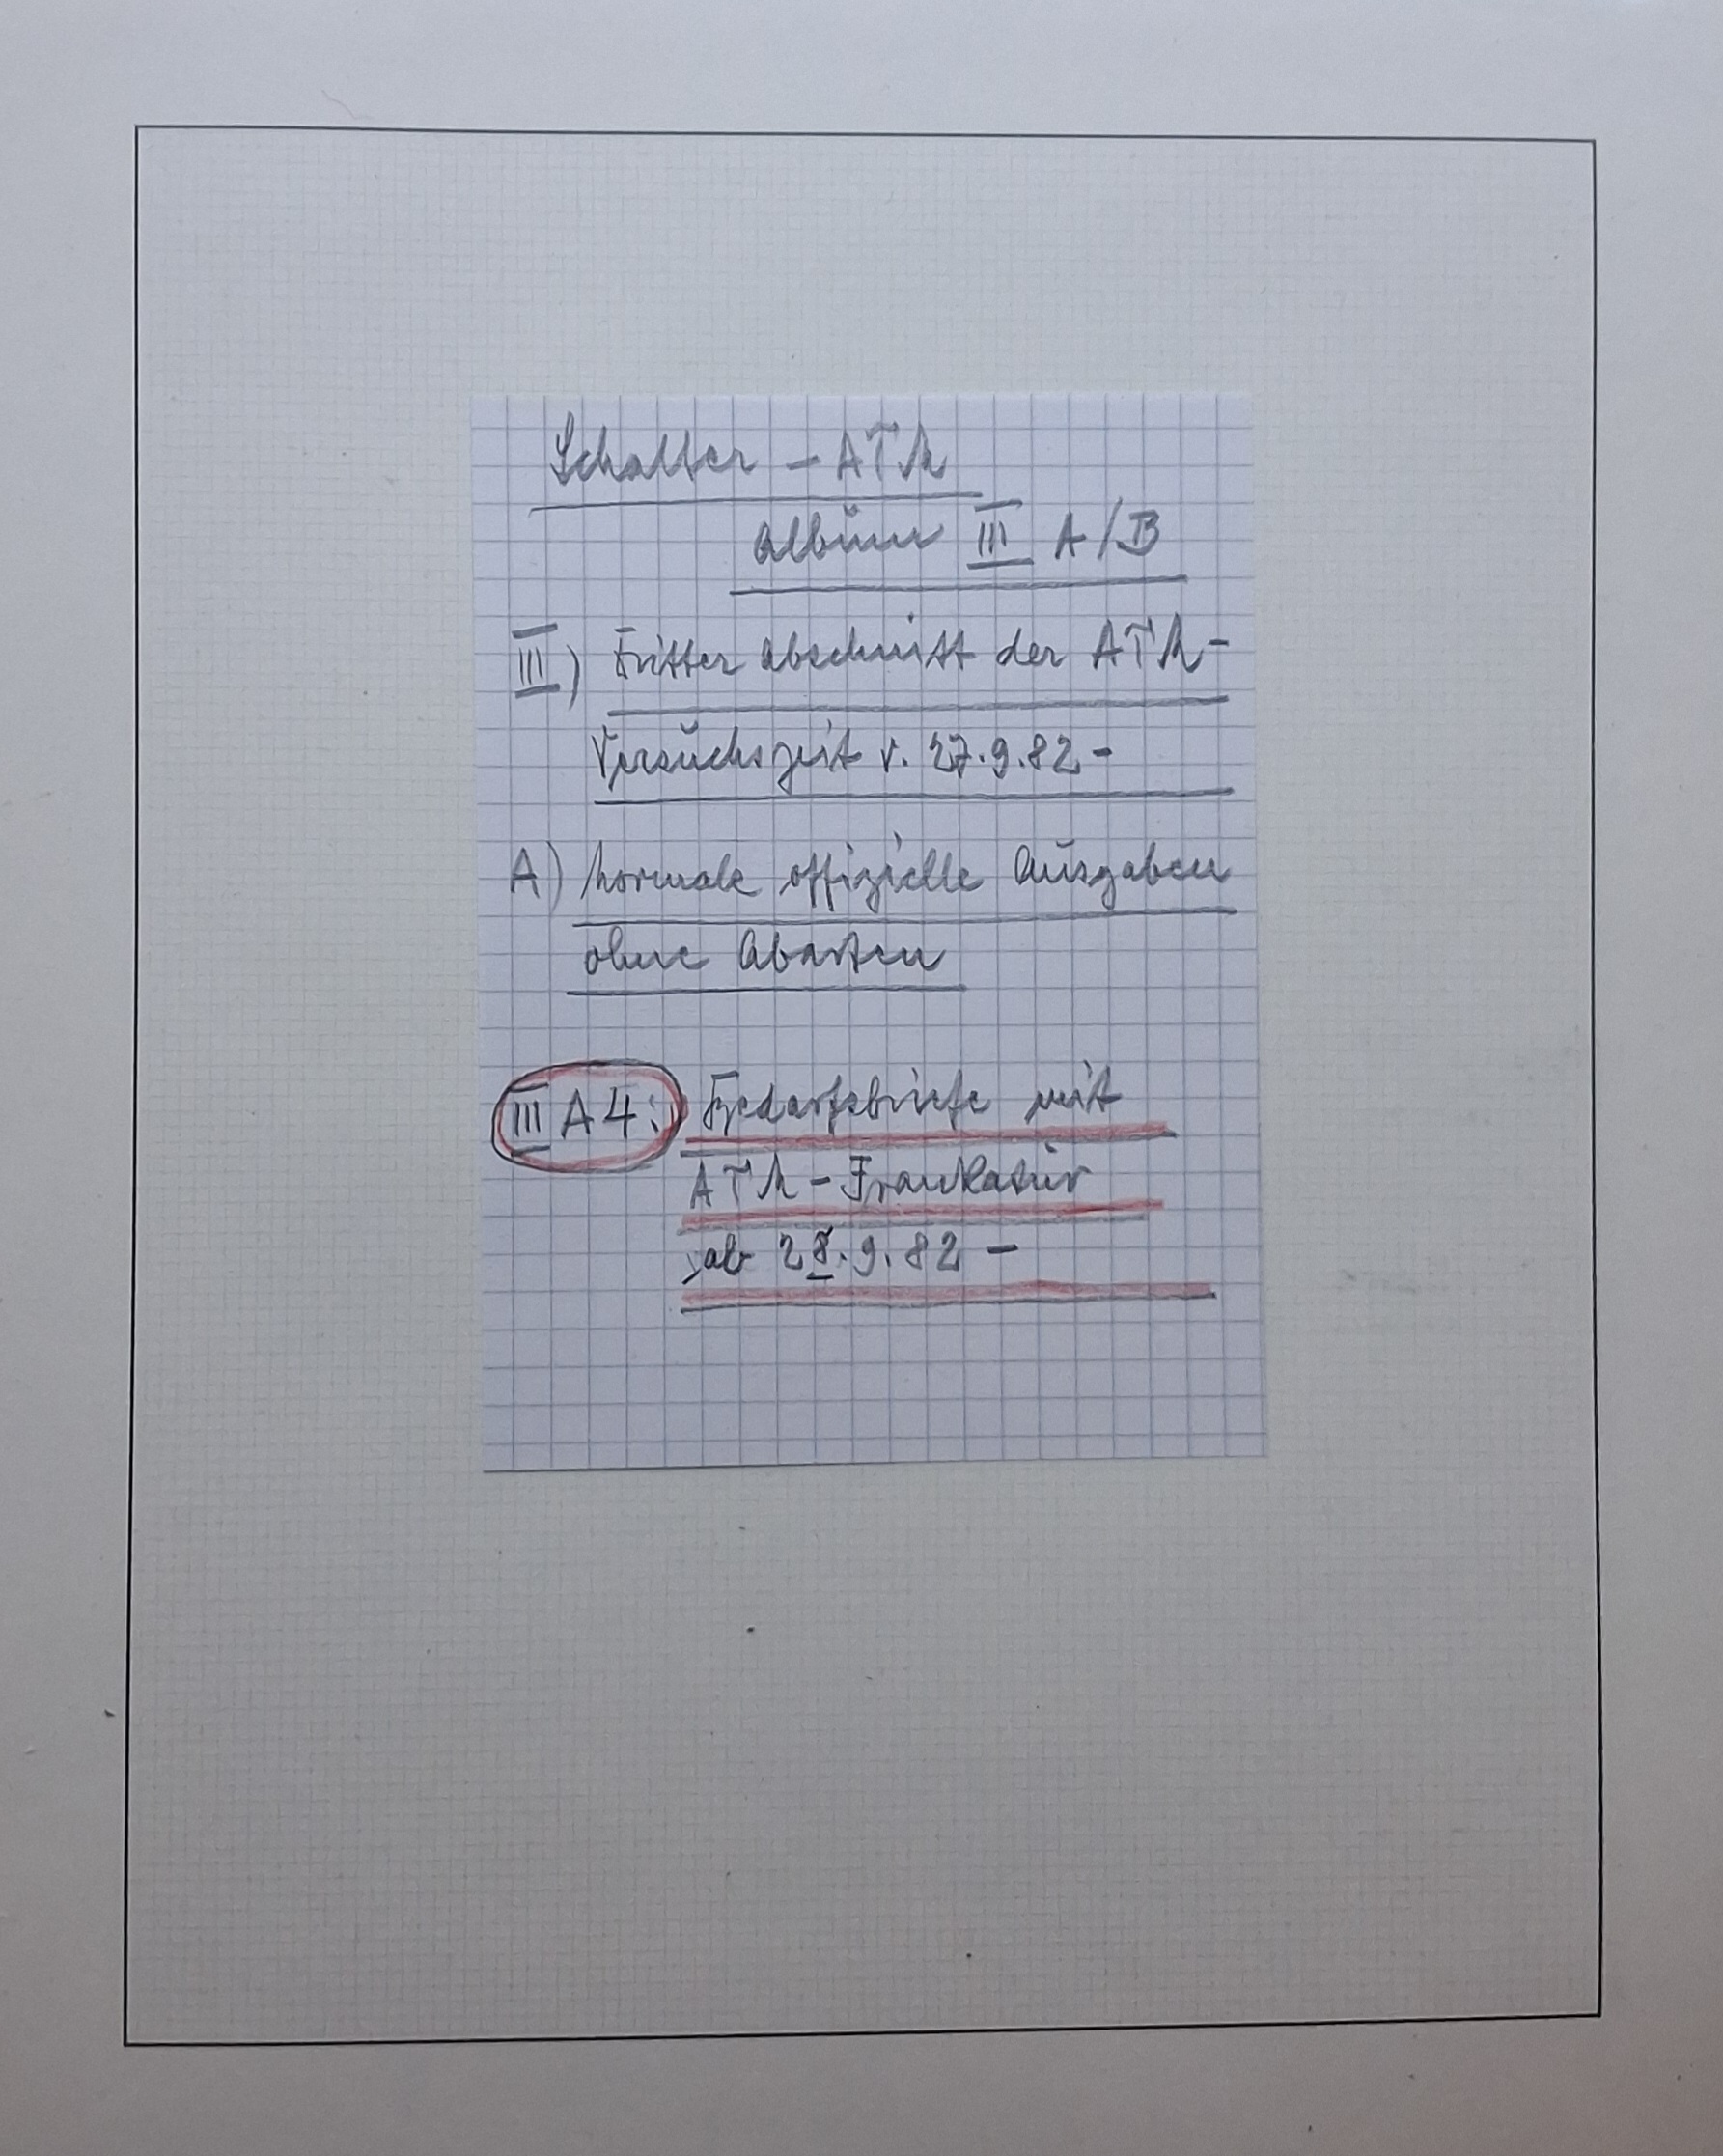 Schalter - ATM
Album III A/B
III) Dritter Abschnitt der ATM-
Versuchszeit v. 27.9.82 -
A) Normale offizielle Ausgaben
ohne Abarten
III A4: Bedarfsbriefe mit
ATM - Frankatur
ab 28.9.82 -